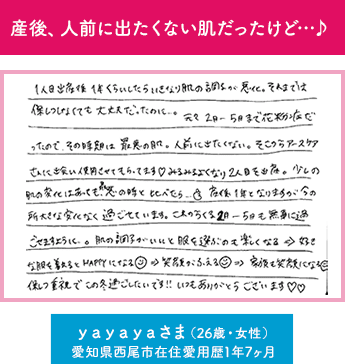 産後、人前に出たくない肌だったけど…♪
1人目出産後1年くらいしたらいきなり肌の調子が悪化。それまでは
保しつしなくても大丈夫だったのに…。元々2月〜5月まで花粉症だ
ったので、その時期は最悪の肌。人前に出たくない。そこからアースケア
さんに出会い使用させてもらってます♡みるみるよくなり2人目を出産。少しの
肌の変化はあっても、悪の時と比べたら…。産後1年となりますが今の
所大きな変化なく過ごせています。これからくる2月〜5月も無事に過
ごせますように…。肌の調子がいいと服を選ぶのも楽しくなる⇒好き
な服を着るとHAPPYになる⇒笑顔がふえる⇒家族も笑顔になる
保しつ重視でこの冬過ごしたいです!!いつもありがとうございます♡♡
yayayaさま（26歳・女性）
愛知県西尾市在住愛用歴1年7ヶ月